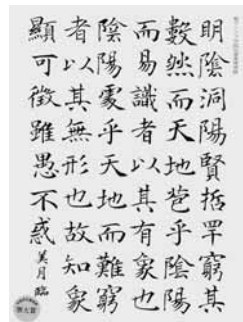 明陰洞陽賢哲罕窮其
數然而天地苞乎陰陽
而易識者以其有象也
陰陽處乎天地而難窮
者以其無形也故知象
顯可徵雖愚不惑
美月臨